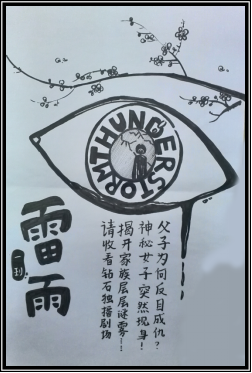 THUNDERSTORM
雷雨
父子为何反目成仇?
神秘女子突然现身!
揭开家族层层谜雾…!
请收看钻石独播剧场